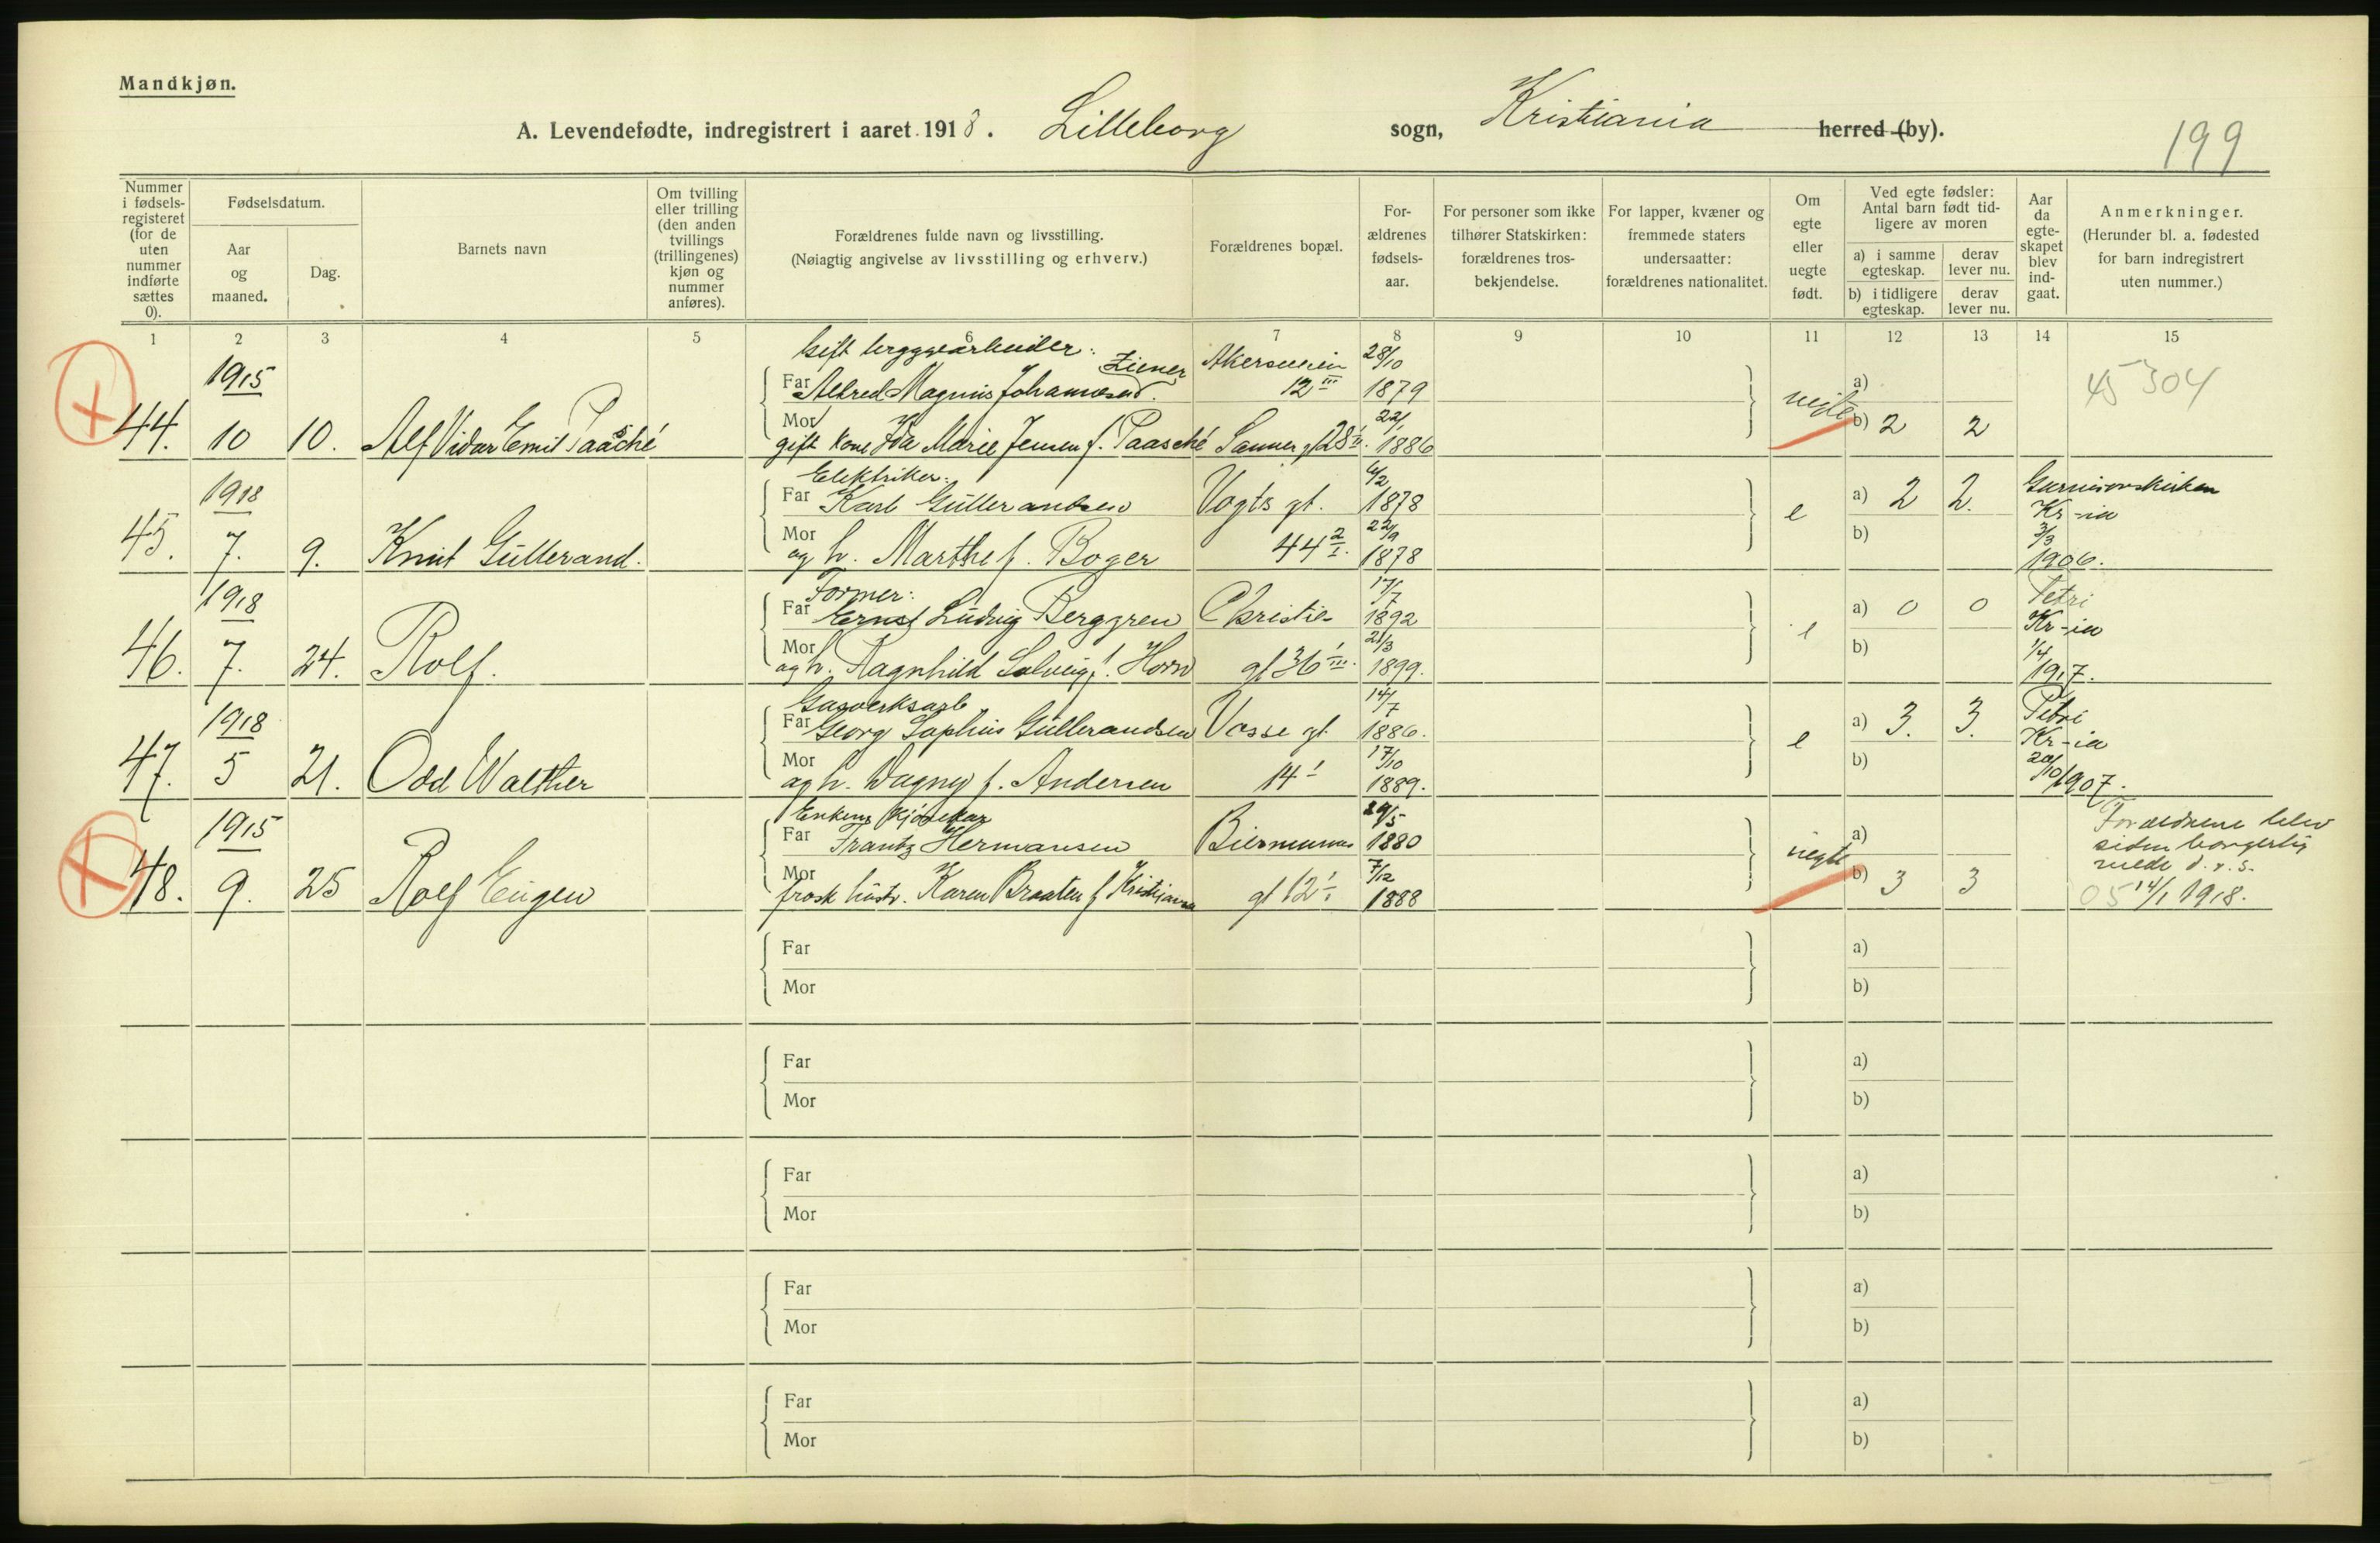 Mandkjøn.
A. Levendefødte, indregistrert i aaret 1918. Lilleborg sogn, Kristiania herred (by).
199
Nummer i fødselsregisteret (for de uten nummer indførte sættes 0).
Fødselsdatum.
Aar og maaned.
Dag.
Barnets navn
Om tvilling eller trilling (den anden tvillings (trillingenes) kjøn og nummer anføres).
Forældrenes fulde navn og livsstilling.
(Nøiagtig angivelse av livsstilling og erhverv.)
Forældrenes bopæl.
For-ældrenes fødsels-aar.
For personer som ikke tilhører Statskirken: forældrenes tros-bekjendelse.
For lapper, kvæner og fremmede staters undersaatter: forældrenes nationalitet.
Om egte eller uegte født.
Ved egte fødsler:
Antal barn født tid-ligere av moren
a) i samme egteskap.
derav lever nu.
b) i tidligere egteskap.
derav lever nu.
Aar da egte-skapet blev ind-gaat.
Anmerkninger.
(Herunder bl. a. fødested for barn indregistrert uten nummer.)
1 2 3 4 5 6 7 8 9 10 11 12 13 14 15
Gift bryggearbeider: Ziener
1915 Far Alfred Magnus Johannesen. Akersveien 12 III 28/10 1879 a) 45304
44. 10 10. Alf Vidar Emil Paasché Mor gift kone Ida Marie Jensen f. Paasché Sanner gt 28 22/1 1886 uegte b) 2 2
Elektriker:
1918 Far Karl Gülleranbsen Vogts gt. 6/2 1878 e a) 2 2. Garnisonskirken Kr-ia
45. 7. 9. Knut Güllerand. Mor og h. Marthe f. Boger 44 2/I. 22/9 1878 b) 3/3 1906.
Former:
1918 Far Ernst Ludvig Berggren Christie- 17/7 1892 e a) 0 0 Petri Kr-ia
46. 7. 24. Rolf. Mor og h. Ragnhild Solveig f. Horn gt 36 I III. 21/3 1899. b) 1/4 1917.
Gasverksarb
1918 Far Georg Sophus Güllerandsen Vosse gt 14/7 1886. e a) 3. 3. Petri Kr-ia
47. 5 21. Odd Walther Mor og h. Dagny f. Andersen 14 I 17/10 1889. b) 20/10 1907.
Enkem. Kjørekar
1915 Far Frantz Hermansen Biermanns 29/5 1880 uegte a) Forældrene blev siden borgerlig viede d. v. s.
48. 9. 25 Rolf Eugen Mor frask. hustr. Karen Braaten f Kristiansen gt 12 I/I 7/12 1888 b) 3 3 05 14/1 1918.
Far a)
Mor b)
Far a)
Mor b)
Far a)
Mor b)
Far a)
Mor b)
Far a)
Mor b)